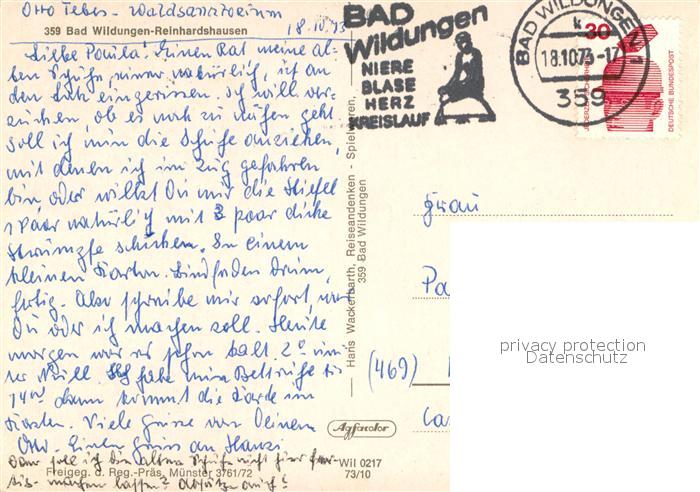 Otto Teber - Waldsanatorium
359 Bad Wildungen-Reinhardshausen 18.10.73
Liebe Paula! Einen Rat meine al-
ten Schuhe, immer natürlich, ist an
den eingerissen. Ich will ver-
suchen ob es noch zu nähen geht
soll ich nun die Schuhe anziehen,
mit denen ich im Zug gefahren
bin, oder willst Du mir die Stiefel
1 Paar natürlich mit 3 paar dicke
Strümpfe schicken. In einem
kleinen Karton. Bindfaden drum,
fertig. Also schreibe mir sofort, was
Du oder ich machen soll. Heute
morgen war es schon kalt 2° un-
ter Null. Ich habe meine Bettruhe bis
14 00 dann kommt die Karte im
Kasten. Viele Grüße von Deinem
Otto. Einen Gruß an Hansi
Oder soll ich die alten Schuhe nicht hier
machen lassen? Absätze auch?
Freigeg. d. Reg.-Präs. Münster 3761/72
Hans Wackerbarth, Reiseandenken - Spielwaren,
359 Bad Wildungen
BAD
Wildungen
NIERE
BLASE
HERZ
KREISLAUF
BAD WILDUNGEN
k
18.10.73-17
359
30
DEUTSCHE BUNDESPOST
Frau
Pa
(469)
privacy protection
Datenschutz
Agfacolor
Wil 0217
73/10